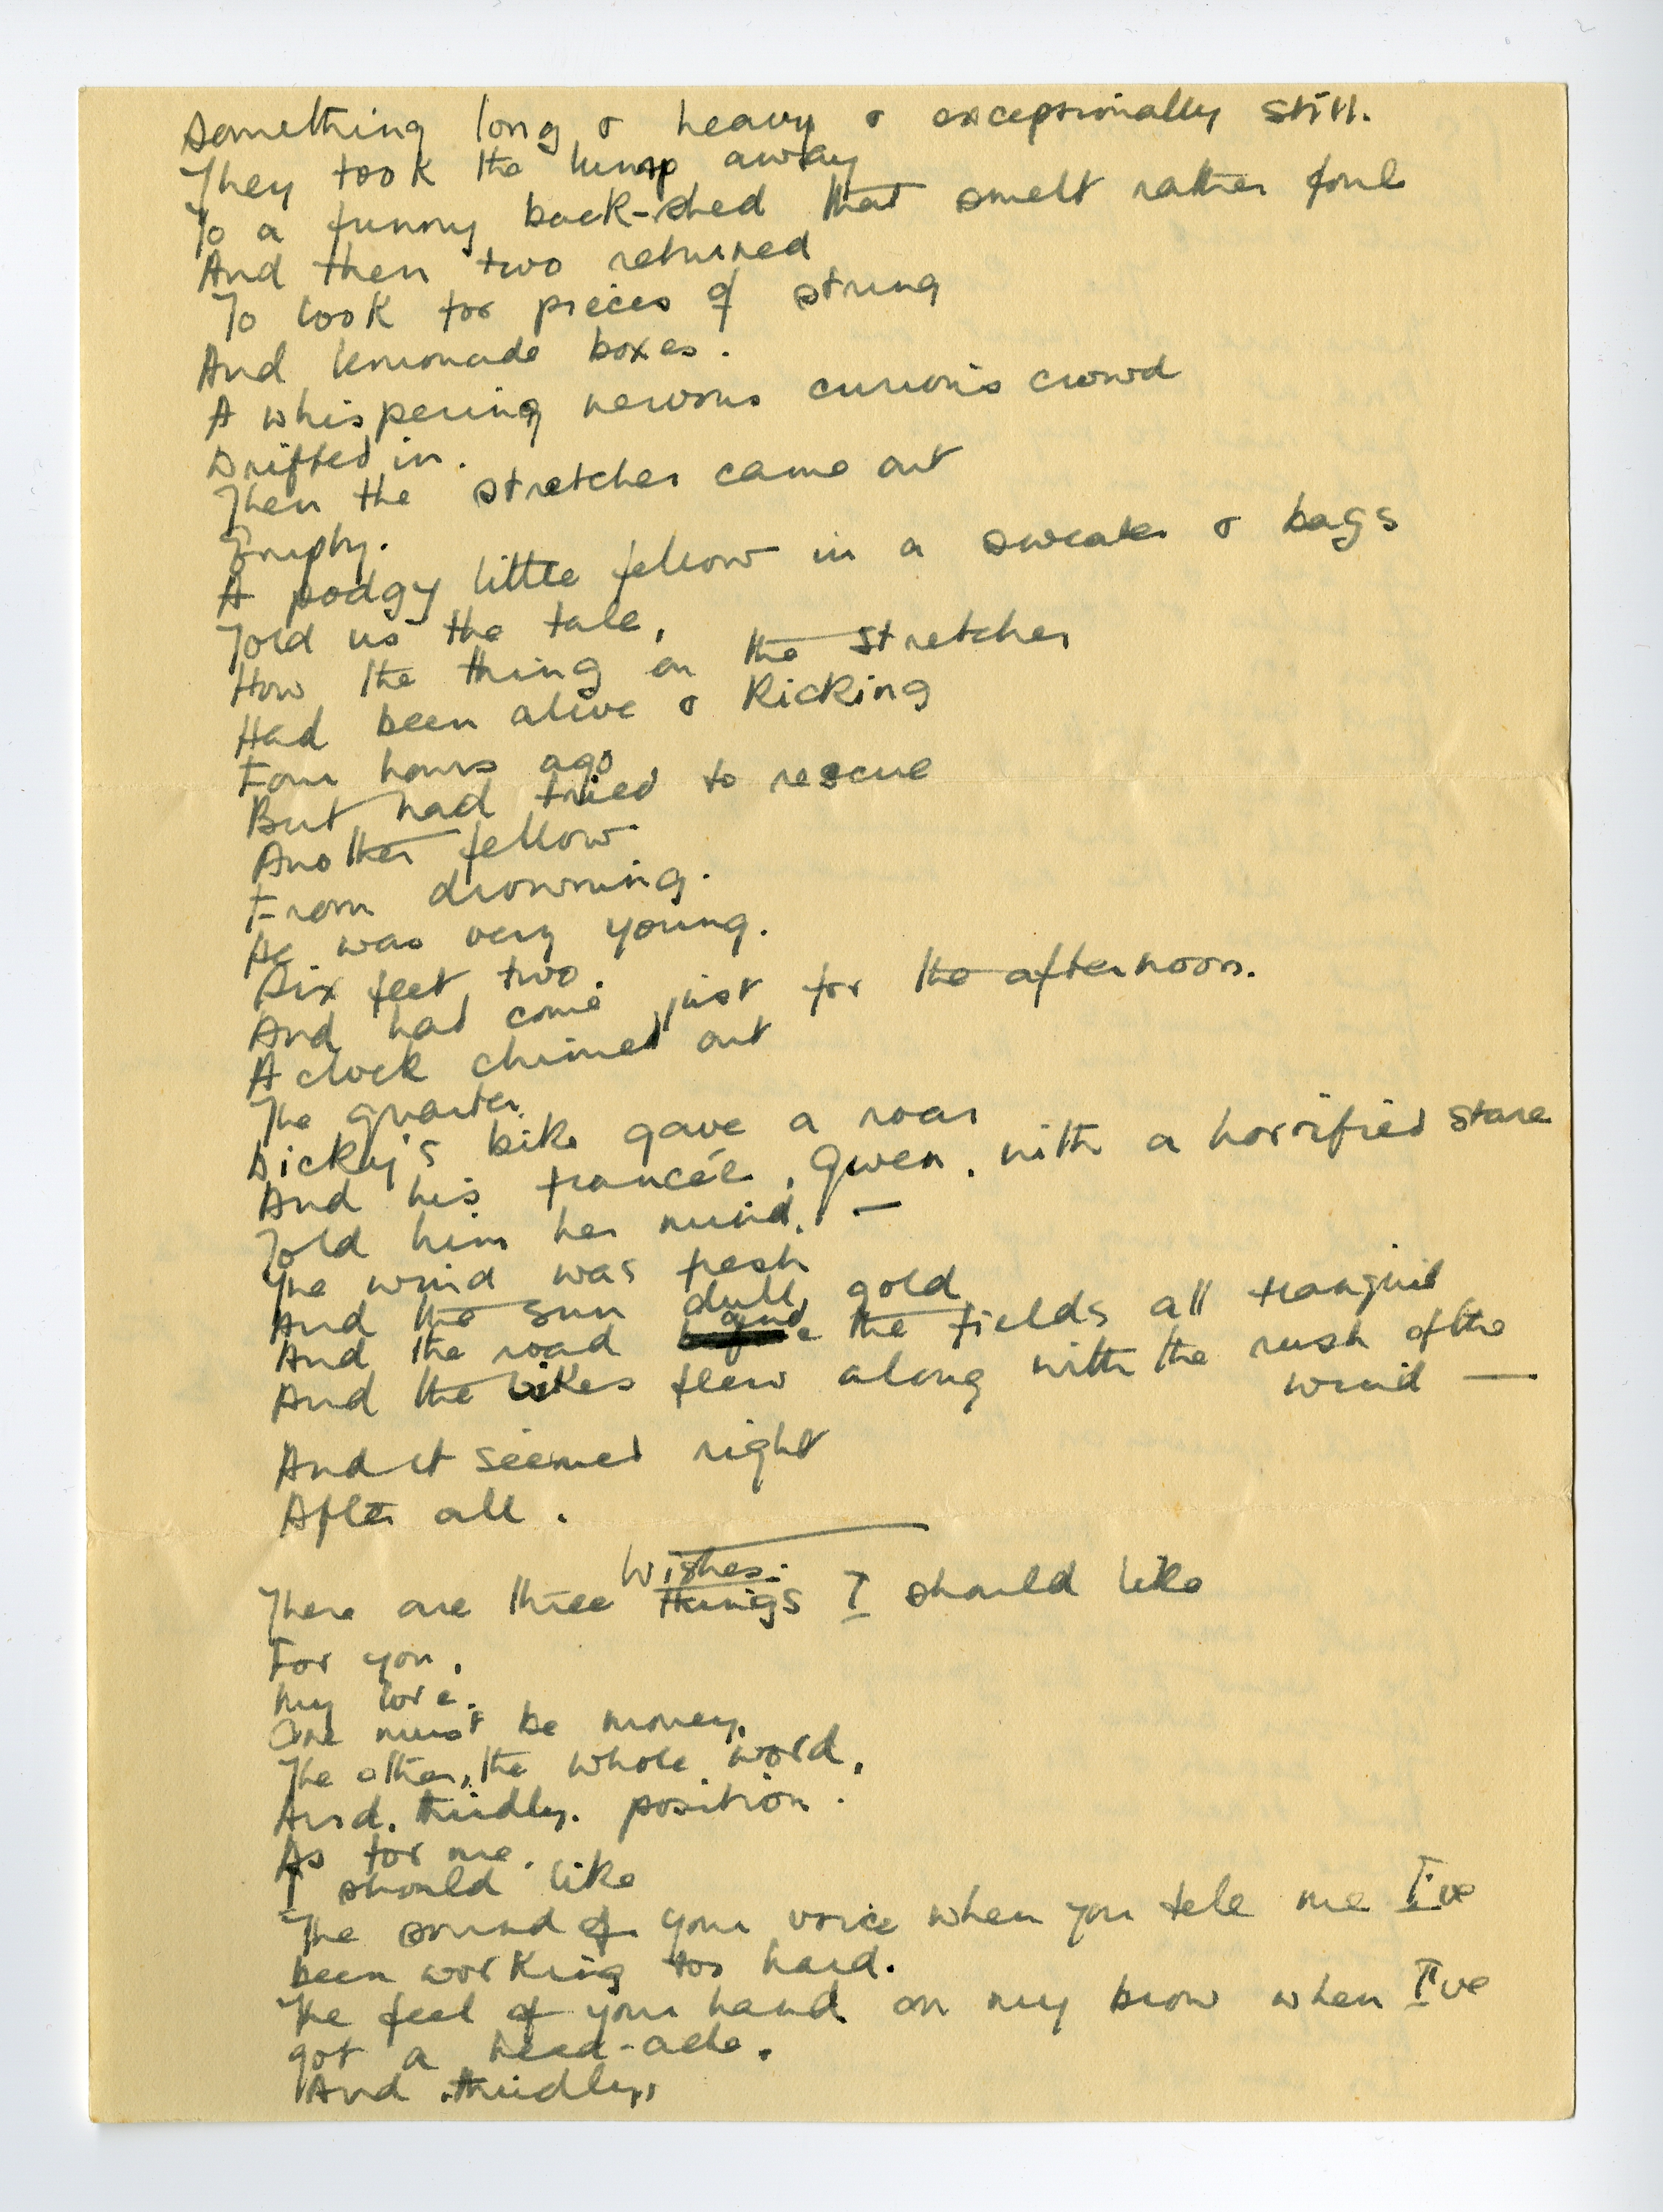 Something long & heavy & exceptionally still.
They took the lump away
To a funny back-shed that smelt rather foul
And then two returned
To look for pieces of string
And lemonade boxes.
A whispering nervous curious crowd
Drifted in.
Then the stretcher came out
Empty.
A podgy little fellow in a sweater & bags
Told us the tale,
How the thing on the stretcher
Had been alive & kicking
Four hours ago
But had tried to rescue
Another fellow
From drowning.
He was very young.
Six feet two.
And had come just for the afternoon.
A clock chimed out
The quarter.
Dicky's bike gave a roar
And his francée, Gwen, with a horrified stare
Told him her mind. —
The wind was fresh
And the sun dull gold
And the road and the fields all tranquil
And the bikes flew along with the rush of the
wind —
And it seemed right
After all.
Wishes.
There are three things I should like
For you,
My love.
One must be money,
The other, the whole word,
And, thirdly, position.
As for me,
I should like
The sound of your voice when you tele me I've
been working too hard.
The feel of your hand on my brow when I've
got a head-ache.
And, thirdly,